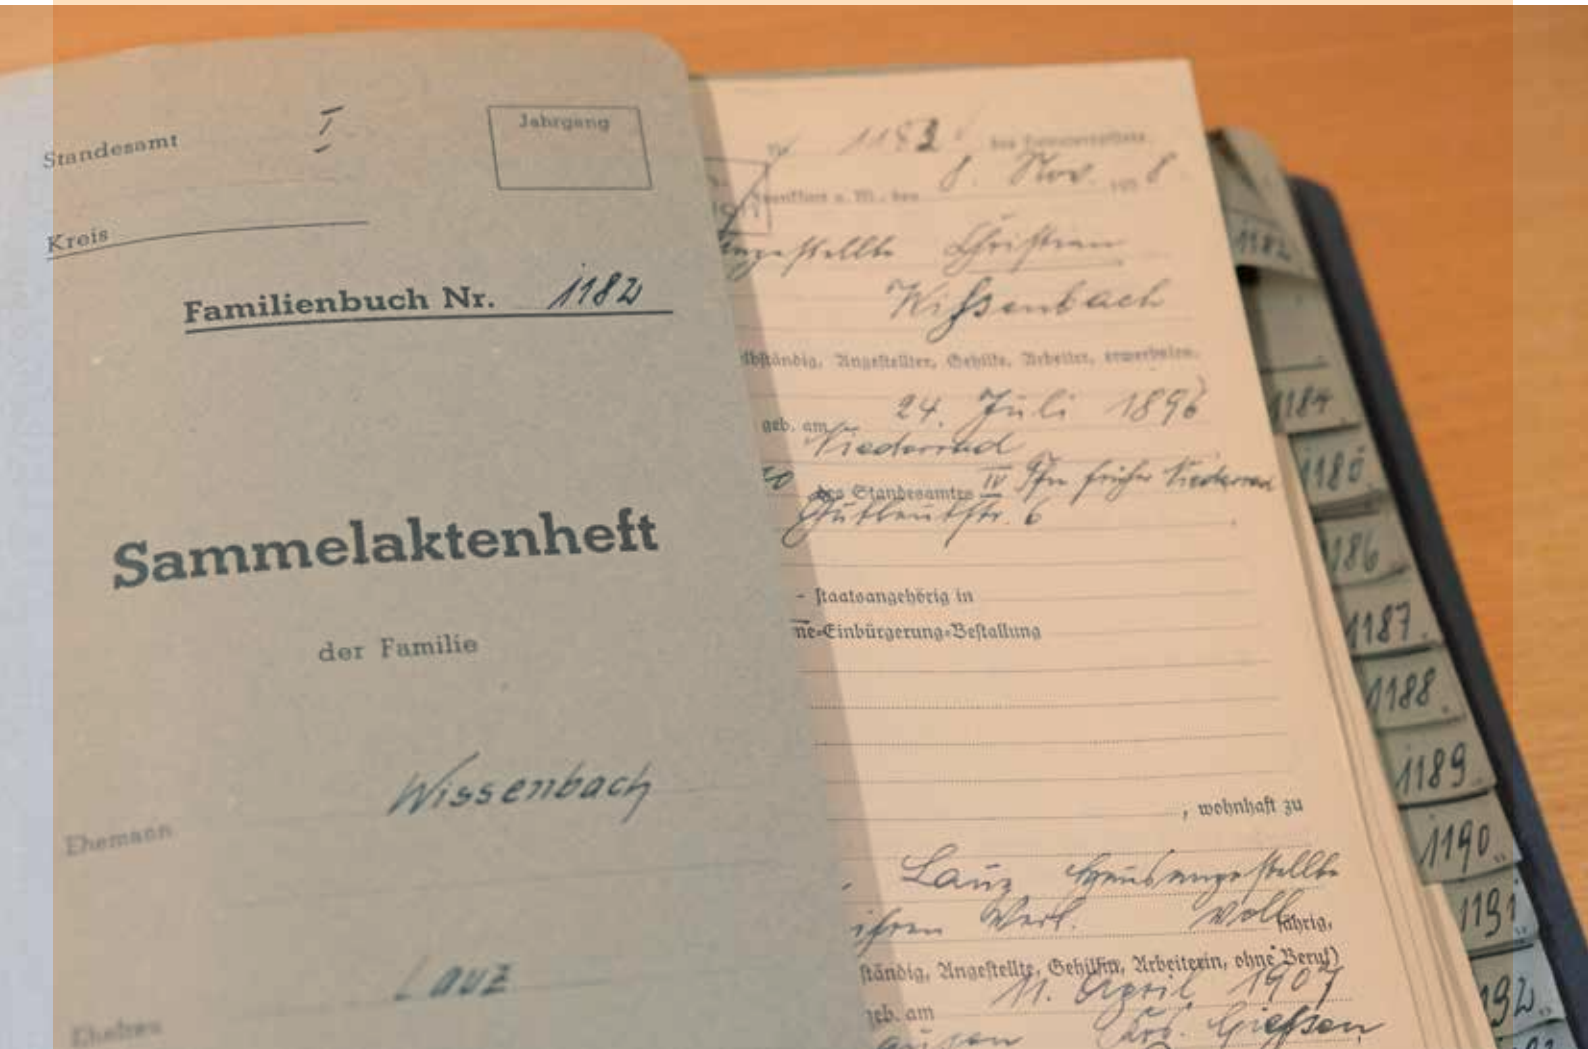 Standesamt I
Jahrgang
Kreis
Familienbuch Nr. 1182
Sammelaktenheft
der Familie
Wissenbach
Ehemann
Lauz
Ehefrau
Nr. 1182
8. Nov. 8
Christian
Wissenbach
Angestellter, Gehilfe, Arbeiter, erwerbslos
geb. am 24. Juli 1896
Niederrad
des Standesamtes IV früher Niederrad
Gutleutstr. 6
- staatsangehörig in
ne-Einbürgerung-Bestallung
, wohnhaft zu
Lauz Hausangestellte
ihren voll jährig,
ständig, Angestellte, Gehilfin, Arbeiterin, ohne Beruf)
geb. am 11. April 1907
Krs. Giessen
1182
1184
1185
1186
1187
1188
1189
1190
1191
1192